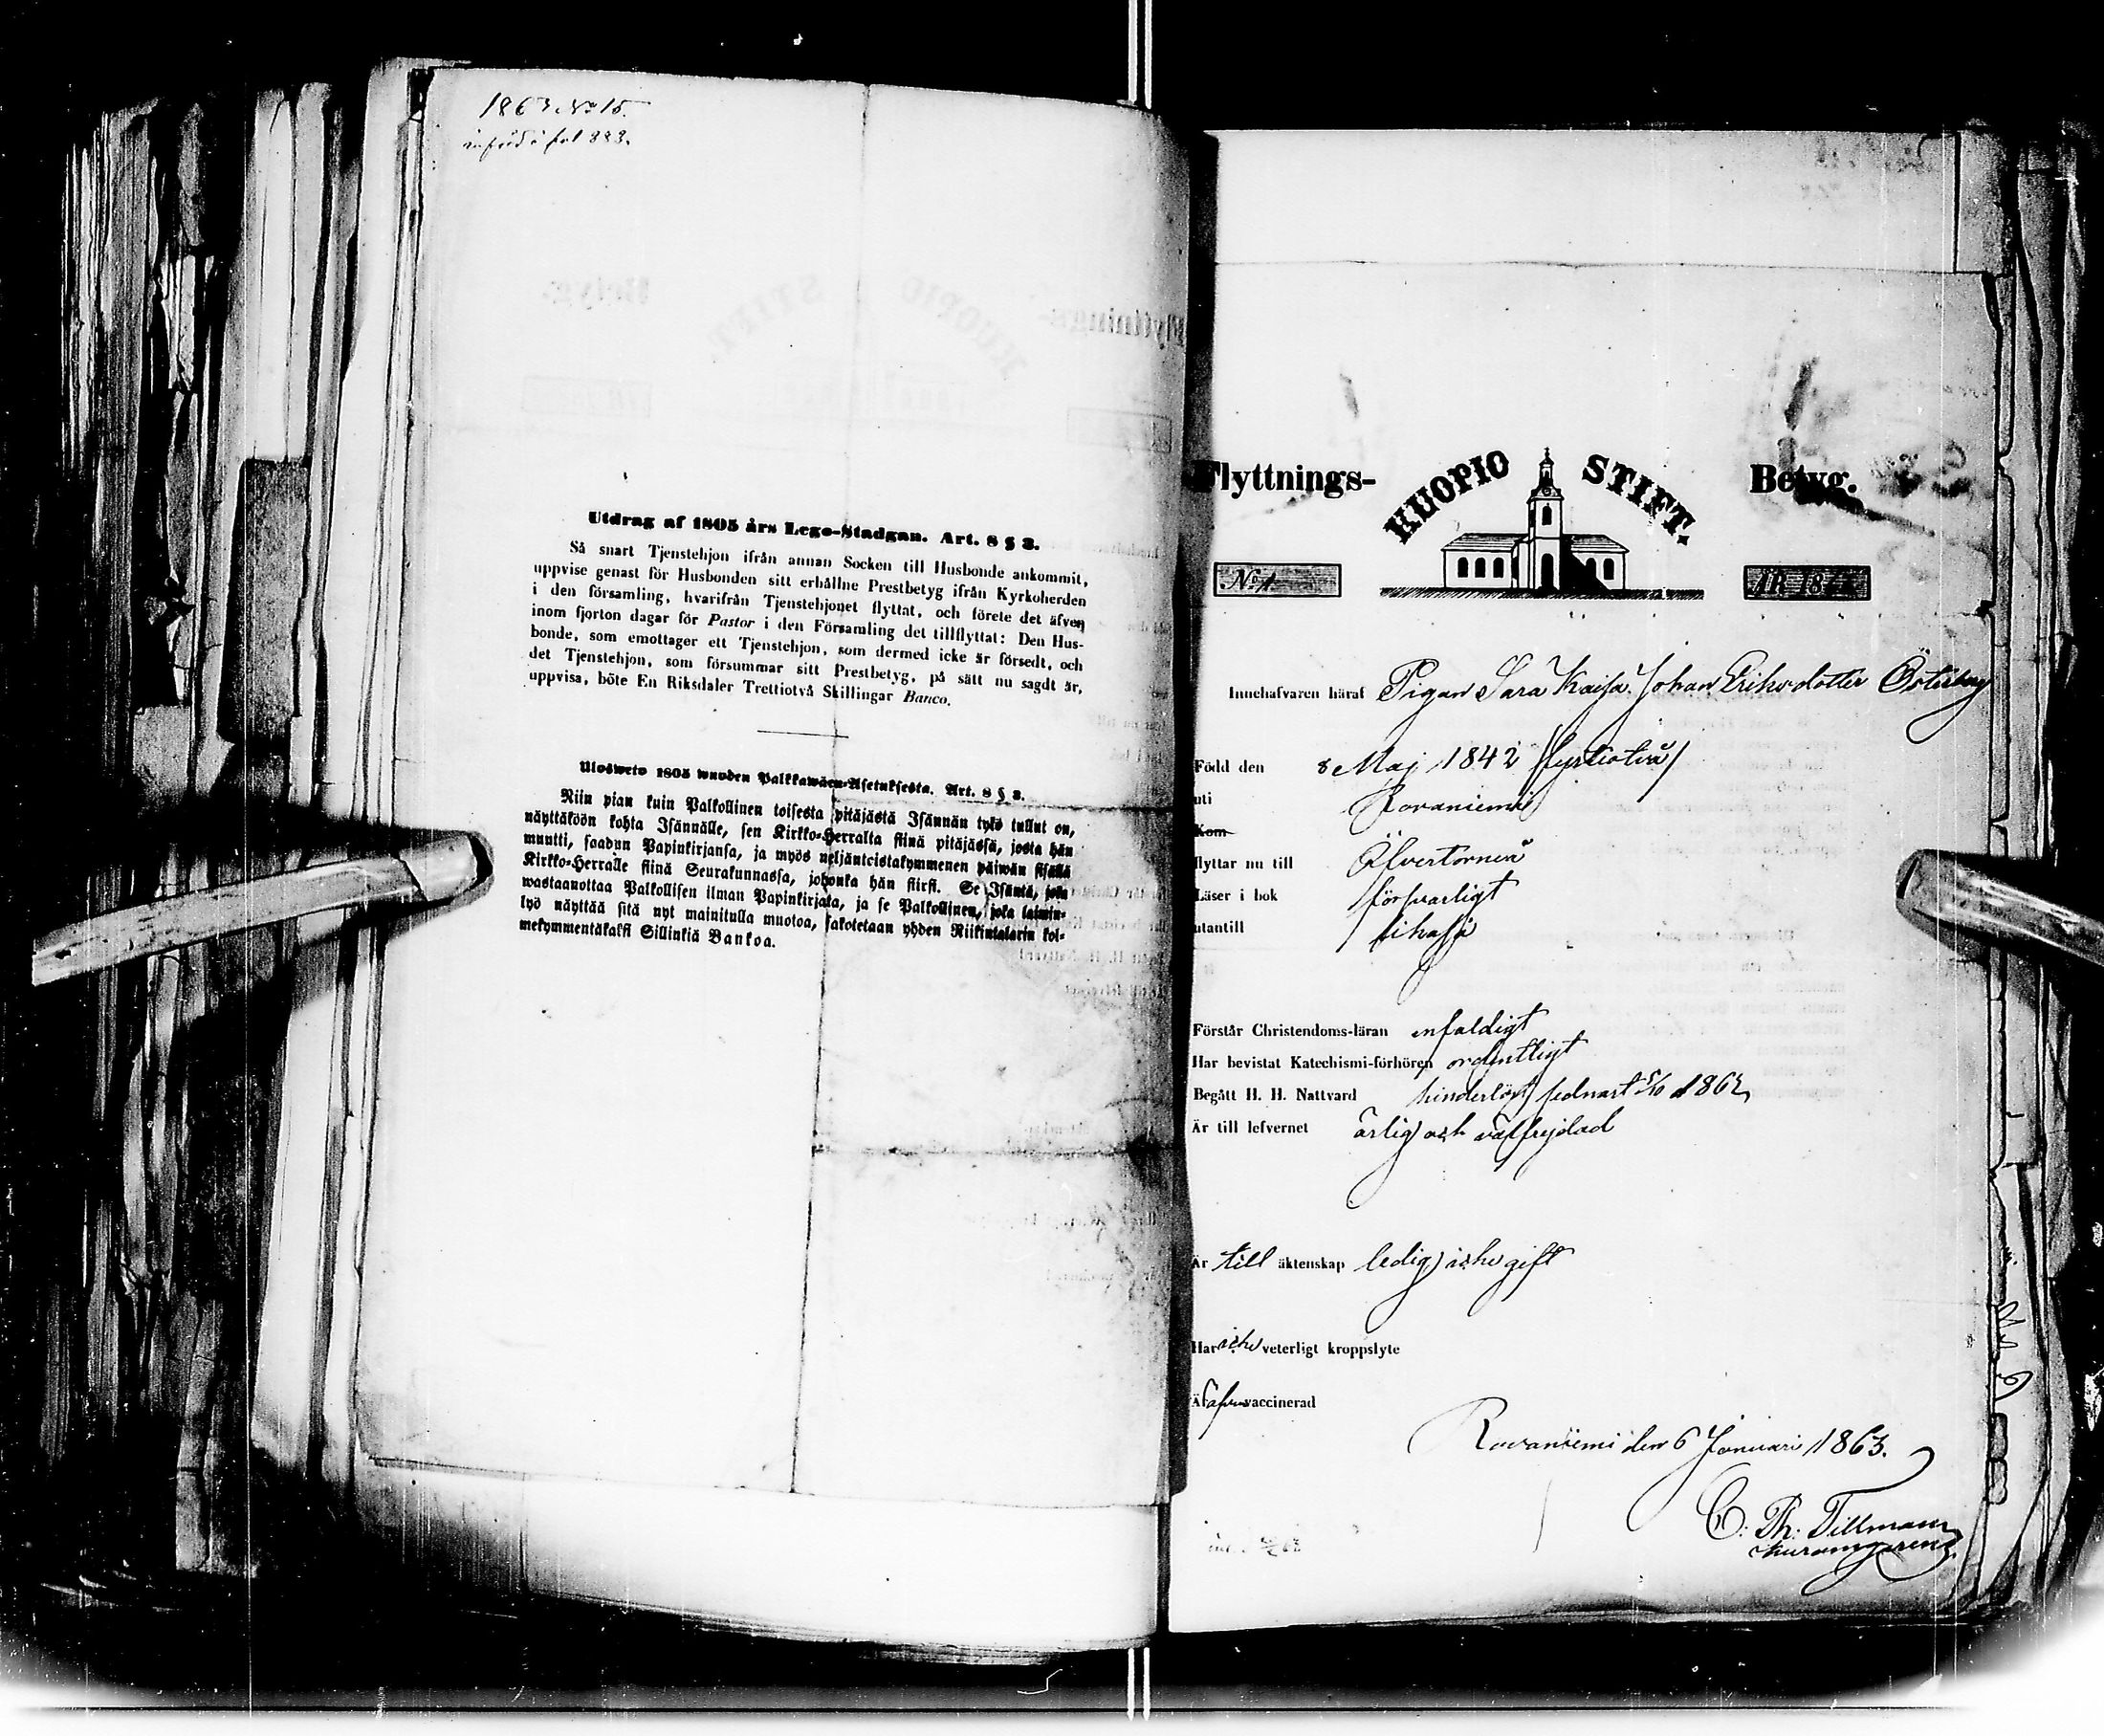 1863. No 15.
införd i fol 883.
Utdrag af 1805 års Lego-Stadgan. Art. 8 § 3.
Så snart Tjenstehjon ifrån annan Socken till Husbonde ankommit,
uppvise genast för Husbonden sitt erhållne Prestbetyg ifrån Kyrkoherden
i den församling, hvarifrån Tjenstehjonet flyttat, och förete det äfven
inom fjorton dagar för Pastor i den Församling det tillflyttat: Den Hus-
bonde, som emottager ett Tjenstehjon, som dermed icke är försedt, och
det Tjenstehjon, som försummar sitt Prestbetyg, på sätt nu sagdt är,
uppvisa, böte En Riksdaler Trettiotvå Skillingar Banco.
Ulosweto 1805 wuoden Palkkawäen-Asetuksesta. Art. 8 § 3.
Niin pian kuin Palkollinen toisesta pitäjästä Isännän tykö tullut on,
näyttäköön kohta Isännälle, sen Kirkko-Herralta siinä pitäjässä, josta hän
muutti, saadun Papinkirjansa, ja myös neljäntoistakymmenen päiwän sisällä
Kirkko-Herralle siinä Seurakunnassa, johonka hän siirsi. Se Isäntä, joka
wastaanottaa Palkollisen ilman Papinkirjata, ja se Palkollinen, joka laimin-
lyö näyttää sitä nyt mainitulla muotoa, sakotetaan yhden Riikintalarin kol-
mekymmentäkaksi Sillinkiä Bankoa.
Flyttnings- KUOPIO STIFT. Betyg.
No 1. ÅR 18
Innehafvaren häraf Pigan Sara Kaisa Johan Eriksdotter Österberg
Född den 8 Maj 1842 /fyratiotvå/
uti Rovaniemi
Kom
flyttar nu till Öfvertorneå
Läser i bok försvarligt
utantill likaså
Förstår Christendoms-läran enfaldigt
Har bevistat Katechismi-förhören ordentligt
Begått H. H. Nattvard hinderlöst, sednast 5/10 1862
Är till lefvernet ärlig och välfrejdad
Är till äktenskap ledig, icke gift
Har icke veterligt kroppslyte
Är äfven vaccinerad
Rovaniemi den 6 Januari 1863.
C. Th. Tillman